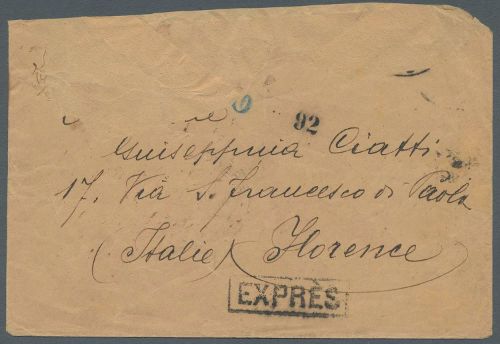 92
Guiseppina Ciatti
17. Via S. Francesco di Paola
(Italie) Florence
EXPRÈS